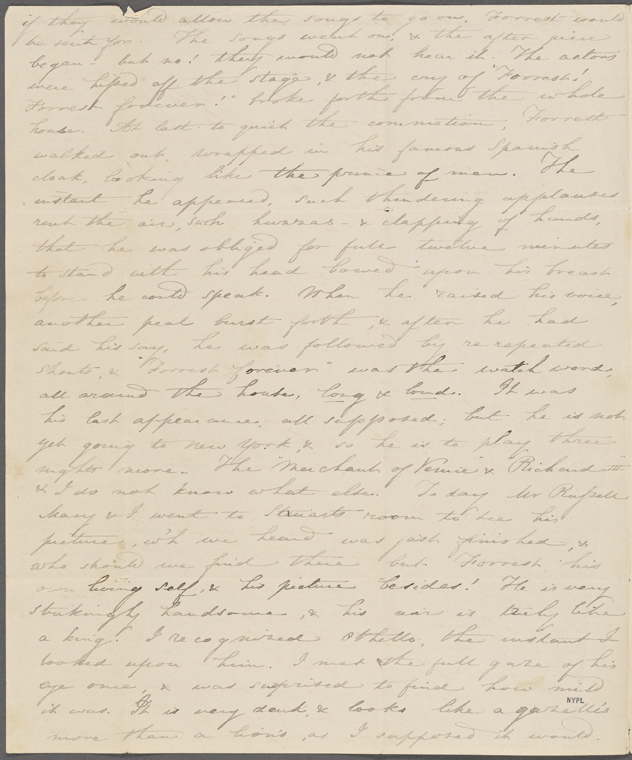 if they would allow the songs to go on, Forrest would
be sent for. The songs went on, & the after piece
began - but no! they would not hear it. The actors
were hissed off the stage, & the cry of "Forrest!
Forrest forever!" broke forth from the whole
house. At last to quiet the commotion, Forrest
walked out wrapped in his famous Spanish
cloak, looking like the prince of men. The
instant he appeared, such thundering applauses
rent the air, such huzzas - & clapping of hands,
that he was obliged for full twelve minutes
to stand with his head bowed upon his breast
before he could speak. When he raised his voice,
another peal burst forth, & after he had
said his say, he was followed by re repeated
shouts, & "Forrest forever" was the watch word,
all around the house, long & loud. It was
his last appearance, all supposed; but he is not
yet going to New York, & so he is to play three
nights more. The "Merchant of Venice" & "Richard
& I do not know what else. Today Mr Russell
Mary & I went to Stuarts room to see his
picture, wh we heard was just finished, &
who should we find there but Forrest his
own living self, & his picture besides! He is very
strikingly handsome, & his air is truly like
a king. I recognized Othello, the instant I
looked upon him. I met the full gaze of his
eye once, & was surprised to find how mild
it was. It is very dark, & looks like a gazelle's
more than a lion's, as I supposed it would.
NYPL